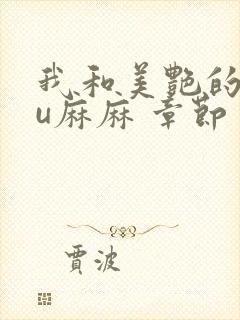 我和美艷的
u麻麻 章節
賈波